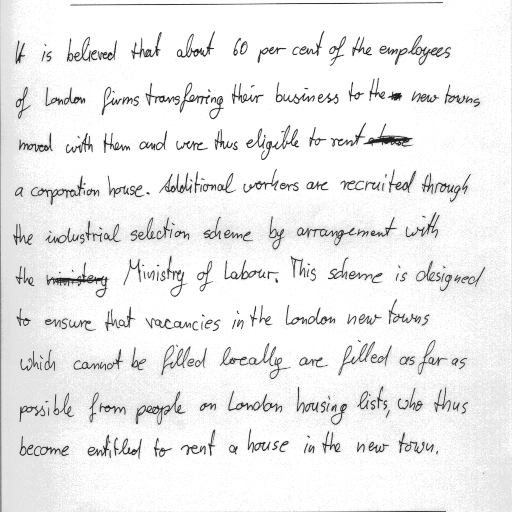 It is believed that about 60 per cent of the employees
of London firms transferring their business to the new towns
moved with them and were thus eligible to rent
a corporation house. Additional workers are recruited through
the industrial selection scheme by arrangement with
the ministery Ministry of Labour. This scheme is designed
to ensure that vacancies in the London new towns
which cannot be filled locally are filled as far as
possible from people on London housing lists, who thus
become entitled to rent a house in the new town.